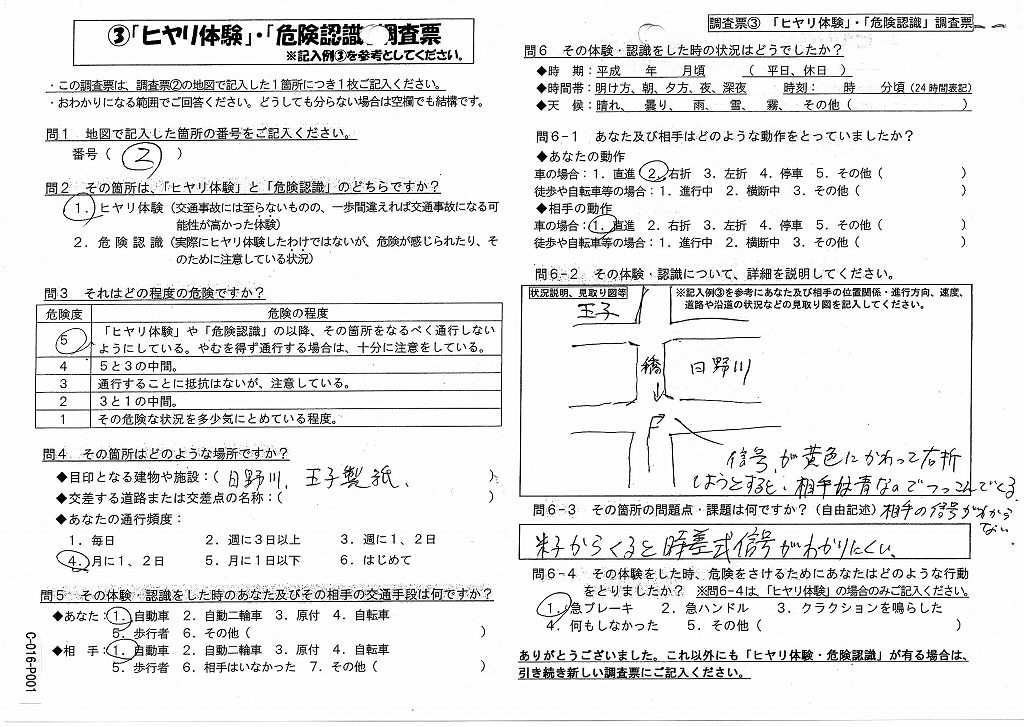 ③「ヒヤリ体験」・「危険認識」調査票
※記入例③を参考としてください。
・この調査票は、調査票②の地図で記入した1箇所につき1枚ご記入ください。
・おわかりになる範囲でご回答ください。どうしても分らない場合は空欄でも結構です。
問1 地図で記入した箇所の番号をご記入ください。
番号（ 2 ）
問2 その箇所は、「ヒヤリ体験」と「危険認識」のどちらですか？
1．ヒヤリ体験（交通事故には至らないものの、一歩間違えれば交通事故になる可
能性が高かった体験）
2．危険認識（実際にヒヤリ体験したわけではないが、危険が感じられたり、そ
のために注意している状況）
問3 それはどの程度の危険ですか？
危険度 危険の程度
5 「ヒヤリ体験」や「危険認識」の以降、その箇所をなるべく通行しない
ようにしている。やむを得ず通行する場合は、十分に注意をしている。
4 5と3の中間。
3 通行することに抵抗はないが、注意している。
2 3と1の中間。
1 その危険な状況を多少気にとめている程度。
問4 その箇所はどのような場所ですか？
◆目印となる建物や施設：（ 日野川、王子製紙、 ）
◆交差する道路または交差点の名称：（ ）
◆あなたの通行頻度：
1．毎日 2．週に3日以上 3．週に1、2日
4．月に1、2日 5．月に1日以下 6．はじめて
問5 その体験・認識をした時のあなた及びその相手の交通手段は何ですか？
◆あなた：1．自動車 2．自動二輪車 3．原付 4．自転車
5．歩行者 6．その他（ ）
◆相 手：1．自動車 2．自動二輪車 3．原付 4．自転車
5．歩行者 6．相手はいなかった 7．その他（ ）
C-016-P001
調査票③ 「ヒヤリ体験」・「危険認識」調査票
問6 その体験・認識をした時の状況はどうでしたか？
◆時 期：平成 年 月頃 （ 平日、休日 ）
◆時間帯：明け方、朝、夕方、夜、深夜 時刻： 時 分頃（24時間表記）
◆天 候：晴れ、 曇り、 雨、 雪、 霧、 その他（ ）
問6-1 あなた及び相手はどのような動作をとっていましたか？
◆あなたの動作
車の場合：1．直進 2．右折 3．左折 4．停車 5．その他（ ）
徒歩や自転車等の場合：1．進行中 2．横断中 3．その他（ ）
◆相手の動作
車の場合：1．直進 2．右折 3．左折 4．停車 5．その他（ ）
徒歩や自転車等の場合：1．進行中 2．横断中 3．その他（ ）
問6-2 その体験・認識について、詳細を説明してください。
状況説明、見取り図等 ※記入例③を参考にあなた及び相手の位置関係・進行方向、速度、
道路や沿道の状況などの見取り図を記入してください。
王子
橋 日野川
信号が黄色にかわって右折
しようとすると、相手は青なのでつっこんでくる
相手の信号がわから
ない。
問6-3 その箇所の問題点・課題は何ですか？（自由記述）
米子からくると時差式信号がわかりにくい、
問6-4 その体験をした時、危険をさけるためにあなたはどのような行動
をとりましたか？ ※問6-4は、「ヒヤリ体験」の場合のみご記入ください。
1．急ブレーキ 2．急ハンドル 3．クラクションを鳴らした
4．何もしなかった 5．その他（ ）
ありがとうございました。これ以外にも「ヒヤリ体験・危険認識」が有る場合は、
引き続き新しい調査票にご記入ください。